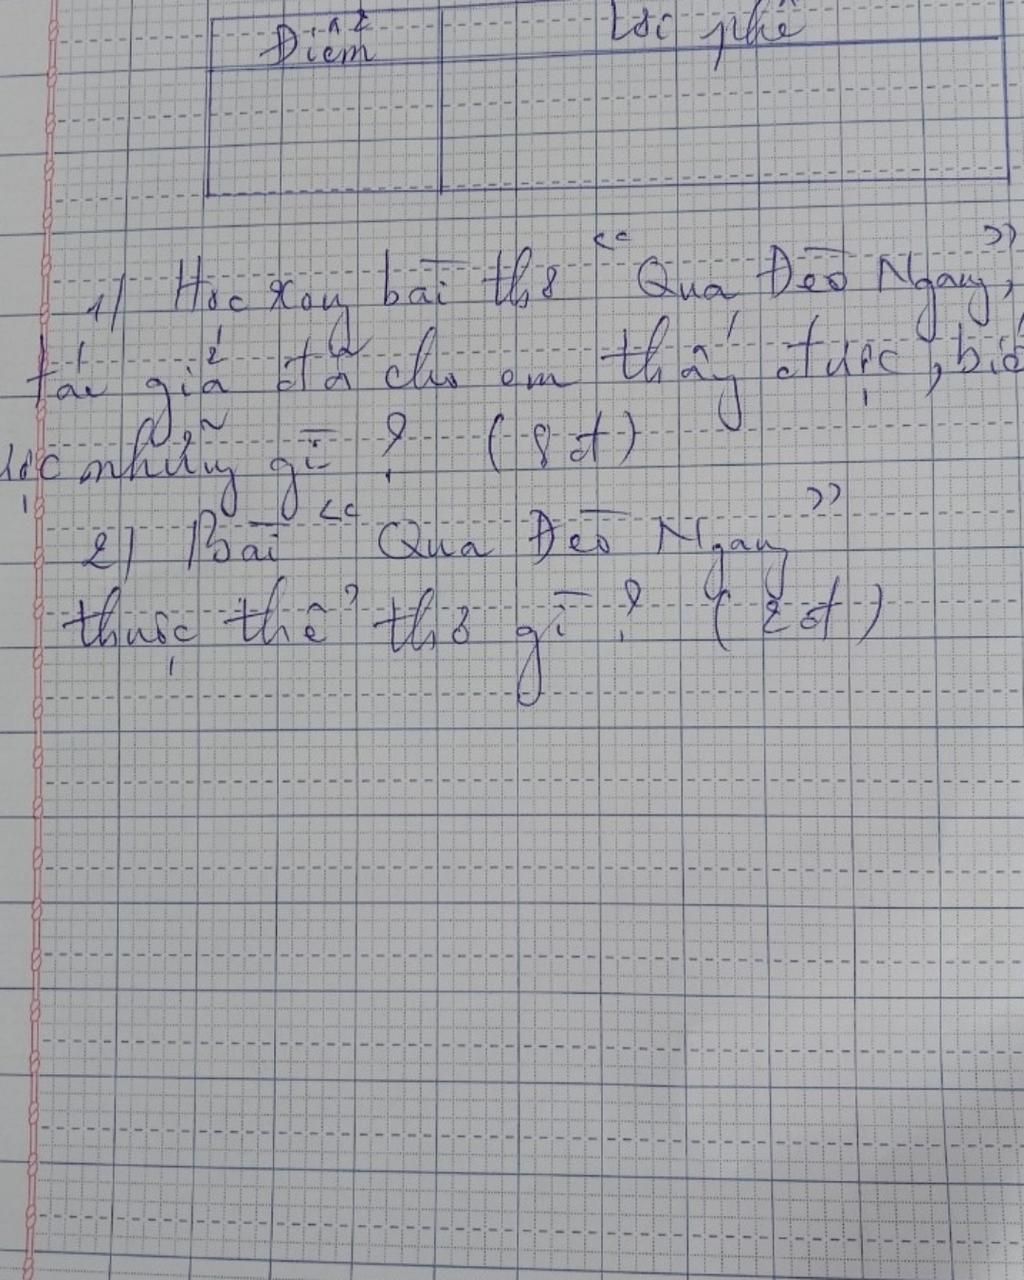 Điểm
Lời phê
1/ Học xong bài thơ “Qua Đèo Ngang”,
tác giả đã cho em thấy được, biết
được những gì? (8đ)
2/ Bài “Qua Đèo Ngang”
thuộc thể thơ gì? (2đ)